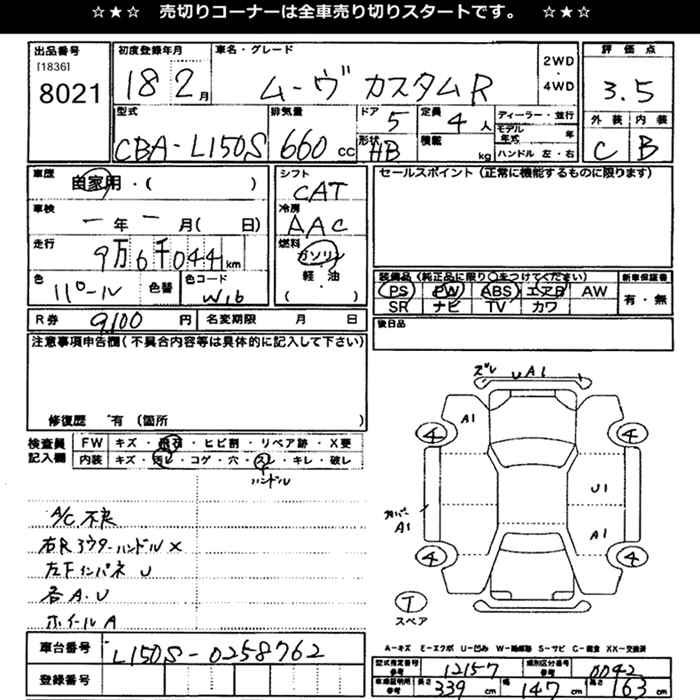 ☆★☆ 売切りコーナーは全車売り切りスタートです。 ☆★☆
出品番号
[1836]
8021
初度登録年月
18 2月
車名・グレード
ムーヴ カスタムR
2WD
・
4WD
評価点
3.5
外装 内装
C B
型式
CBA-L150S
排気量
660 cc
ドア 5
形状 HB
定員 4 人
積載 kg
ディーラー・並行
モデル年式 年
ハンドル 左・右
車歴
自家用・( )
車検
一年一月( 日)
走行
9万6千044km
色
パール
色替
色コード
W16
シフト
CAT
冷房
AAC
燃料
ガソリン
軽・油
( )
セールスポイント(正常に機能するものに限ります)
装備品(純正品に限り○をつけてください)
PS PW ABS エアB AW
SR ナビ TV カワ
新車保証書
有・無
後日品
R券 9,100 円
名変期限 月 日
注意事項申告欄(不具合内容等は具体的に記入して下さい)
修復歴 有(箇所
検査員
記入欄
FW キズ・飛石・ヒビ割・リペア跡・X要
内装 キズ・汚レ・コゲ・穴・スレ・キレ・破レ
ハンドル
A/C不良
右Rアウターハンドル×
左下インパネU
各A.U
ホイールA
ズレ
UA1
A1
4
4
U1
A1
A1
4
4
T
スペア
A-キズ E-エクボ U-凹み W-補修跡 S-サビ C-腐食 XX-交換済
車台番号
L150S-0258762
登録番号
型式指定番号
参考
12157
類別区分番号
参考
0042
車庫証明用
参考
長さ 339 cm
幅 147 cm
高さ 163 cm